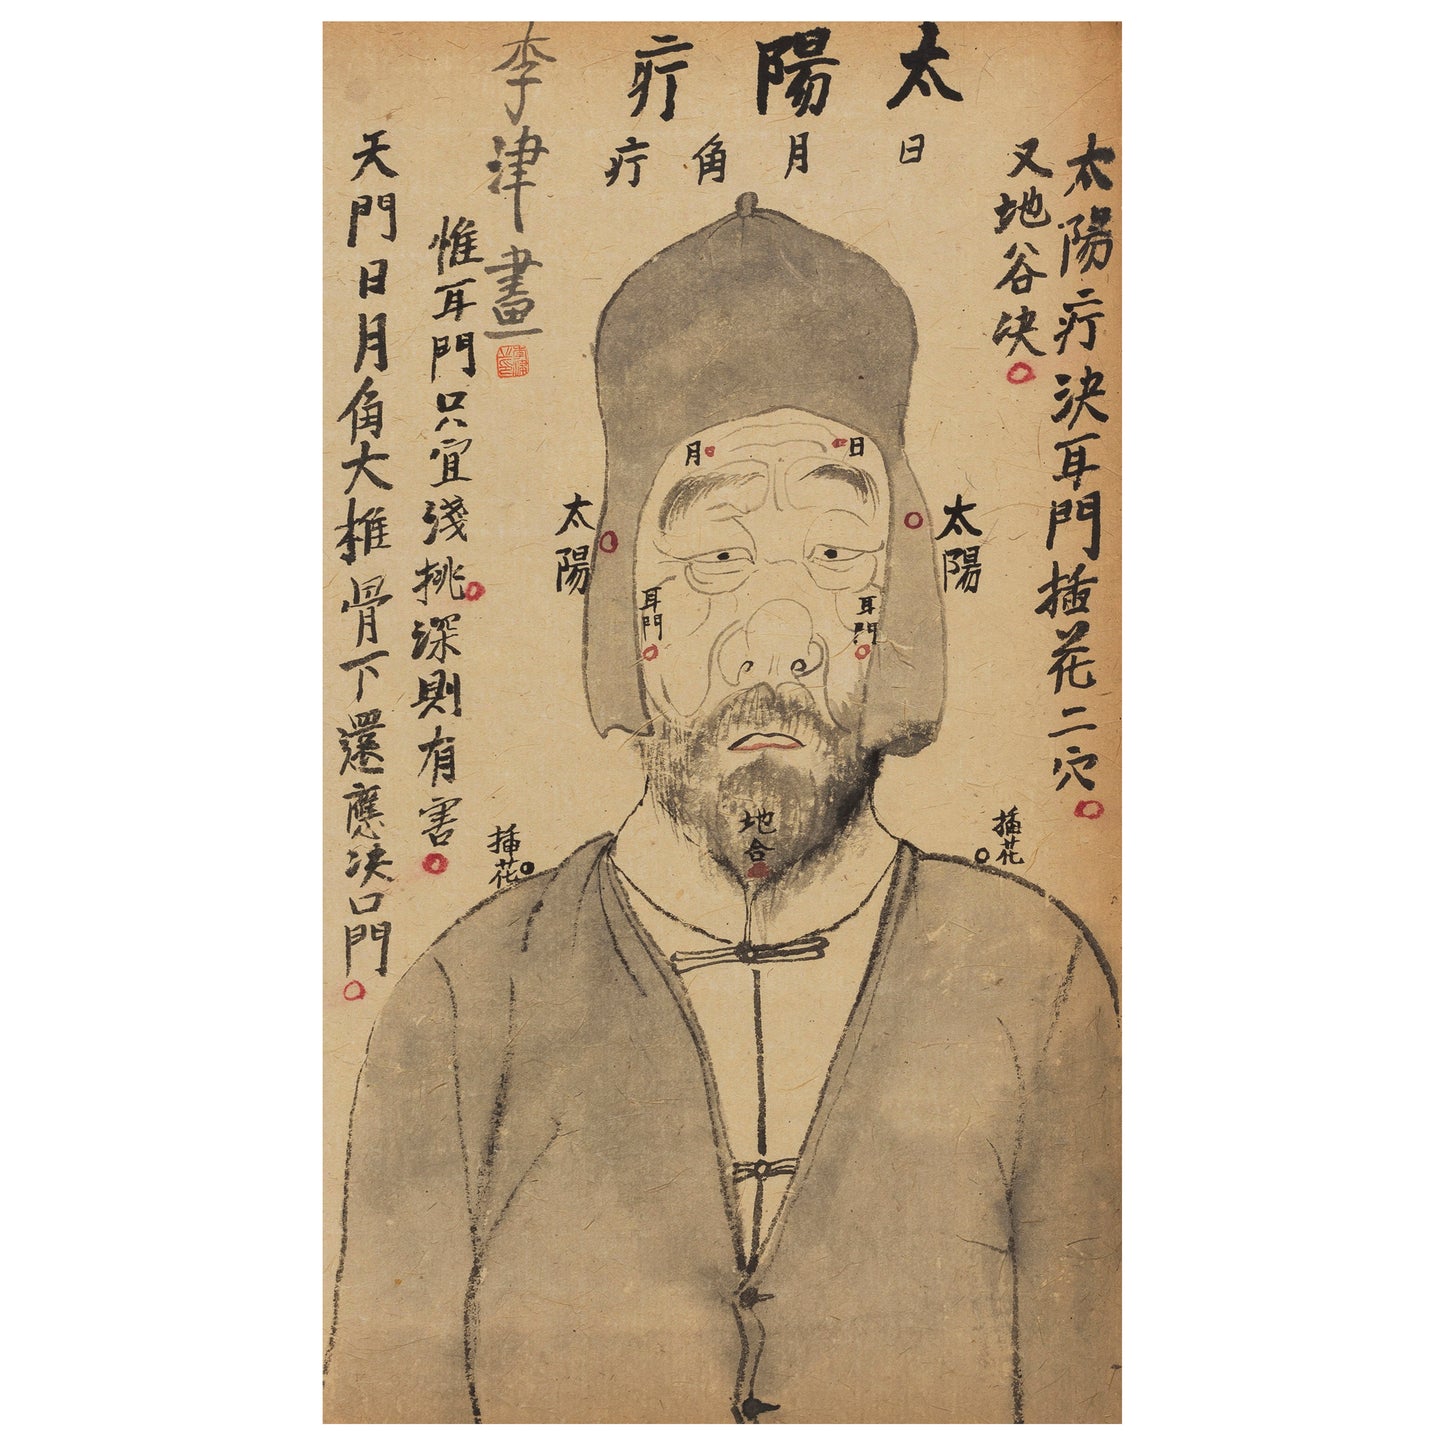 太陽疔
日月角疔
太陽疔決耳門插花二穴
又地谷决
李津畫
惟耳門只宜淺挑深則有害
天門日月角大椎骨下還應决口門
月
日
太陽
太陽
耳門
耳門
地合
插花
插花